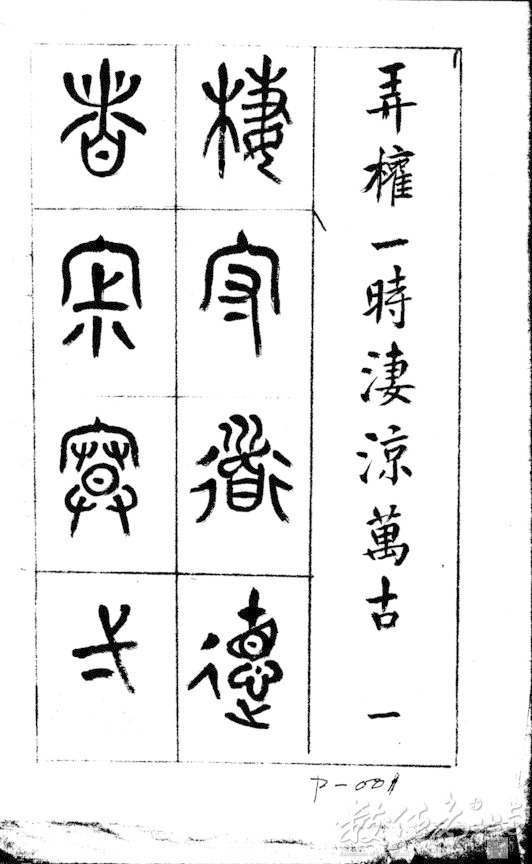 弄權一時淒涼萬古 一
棲守道德
者寂寞弌
P-001